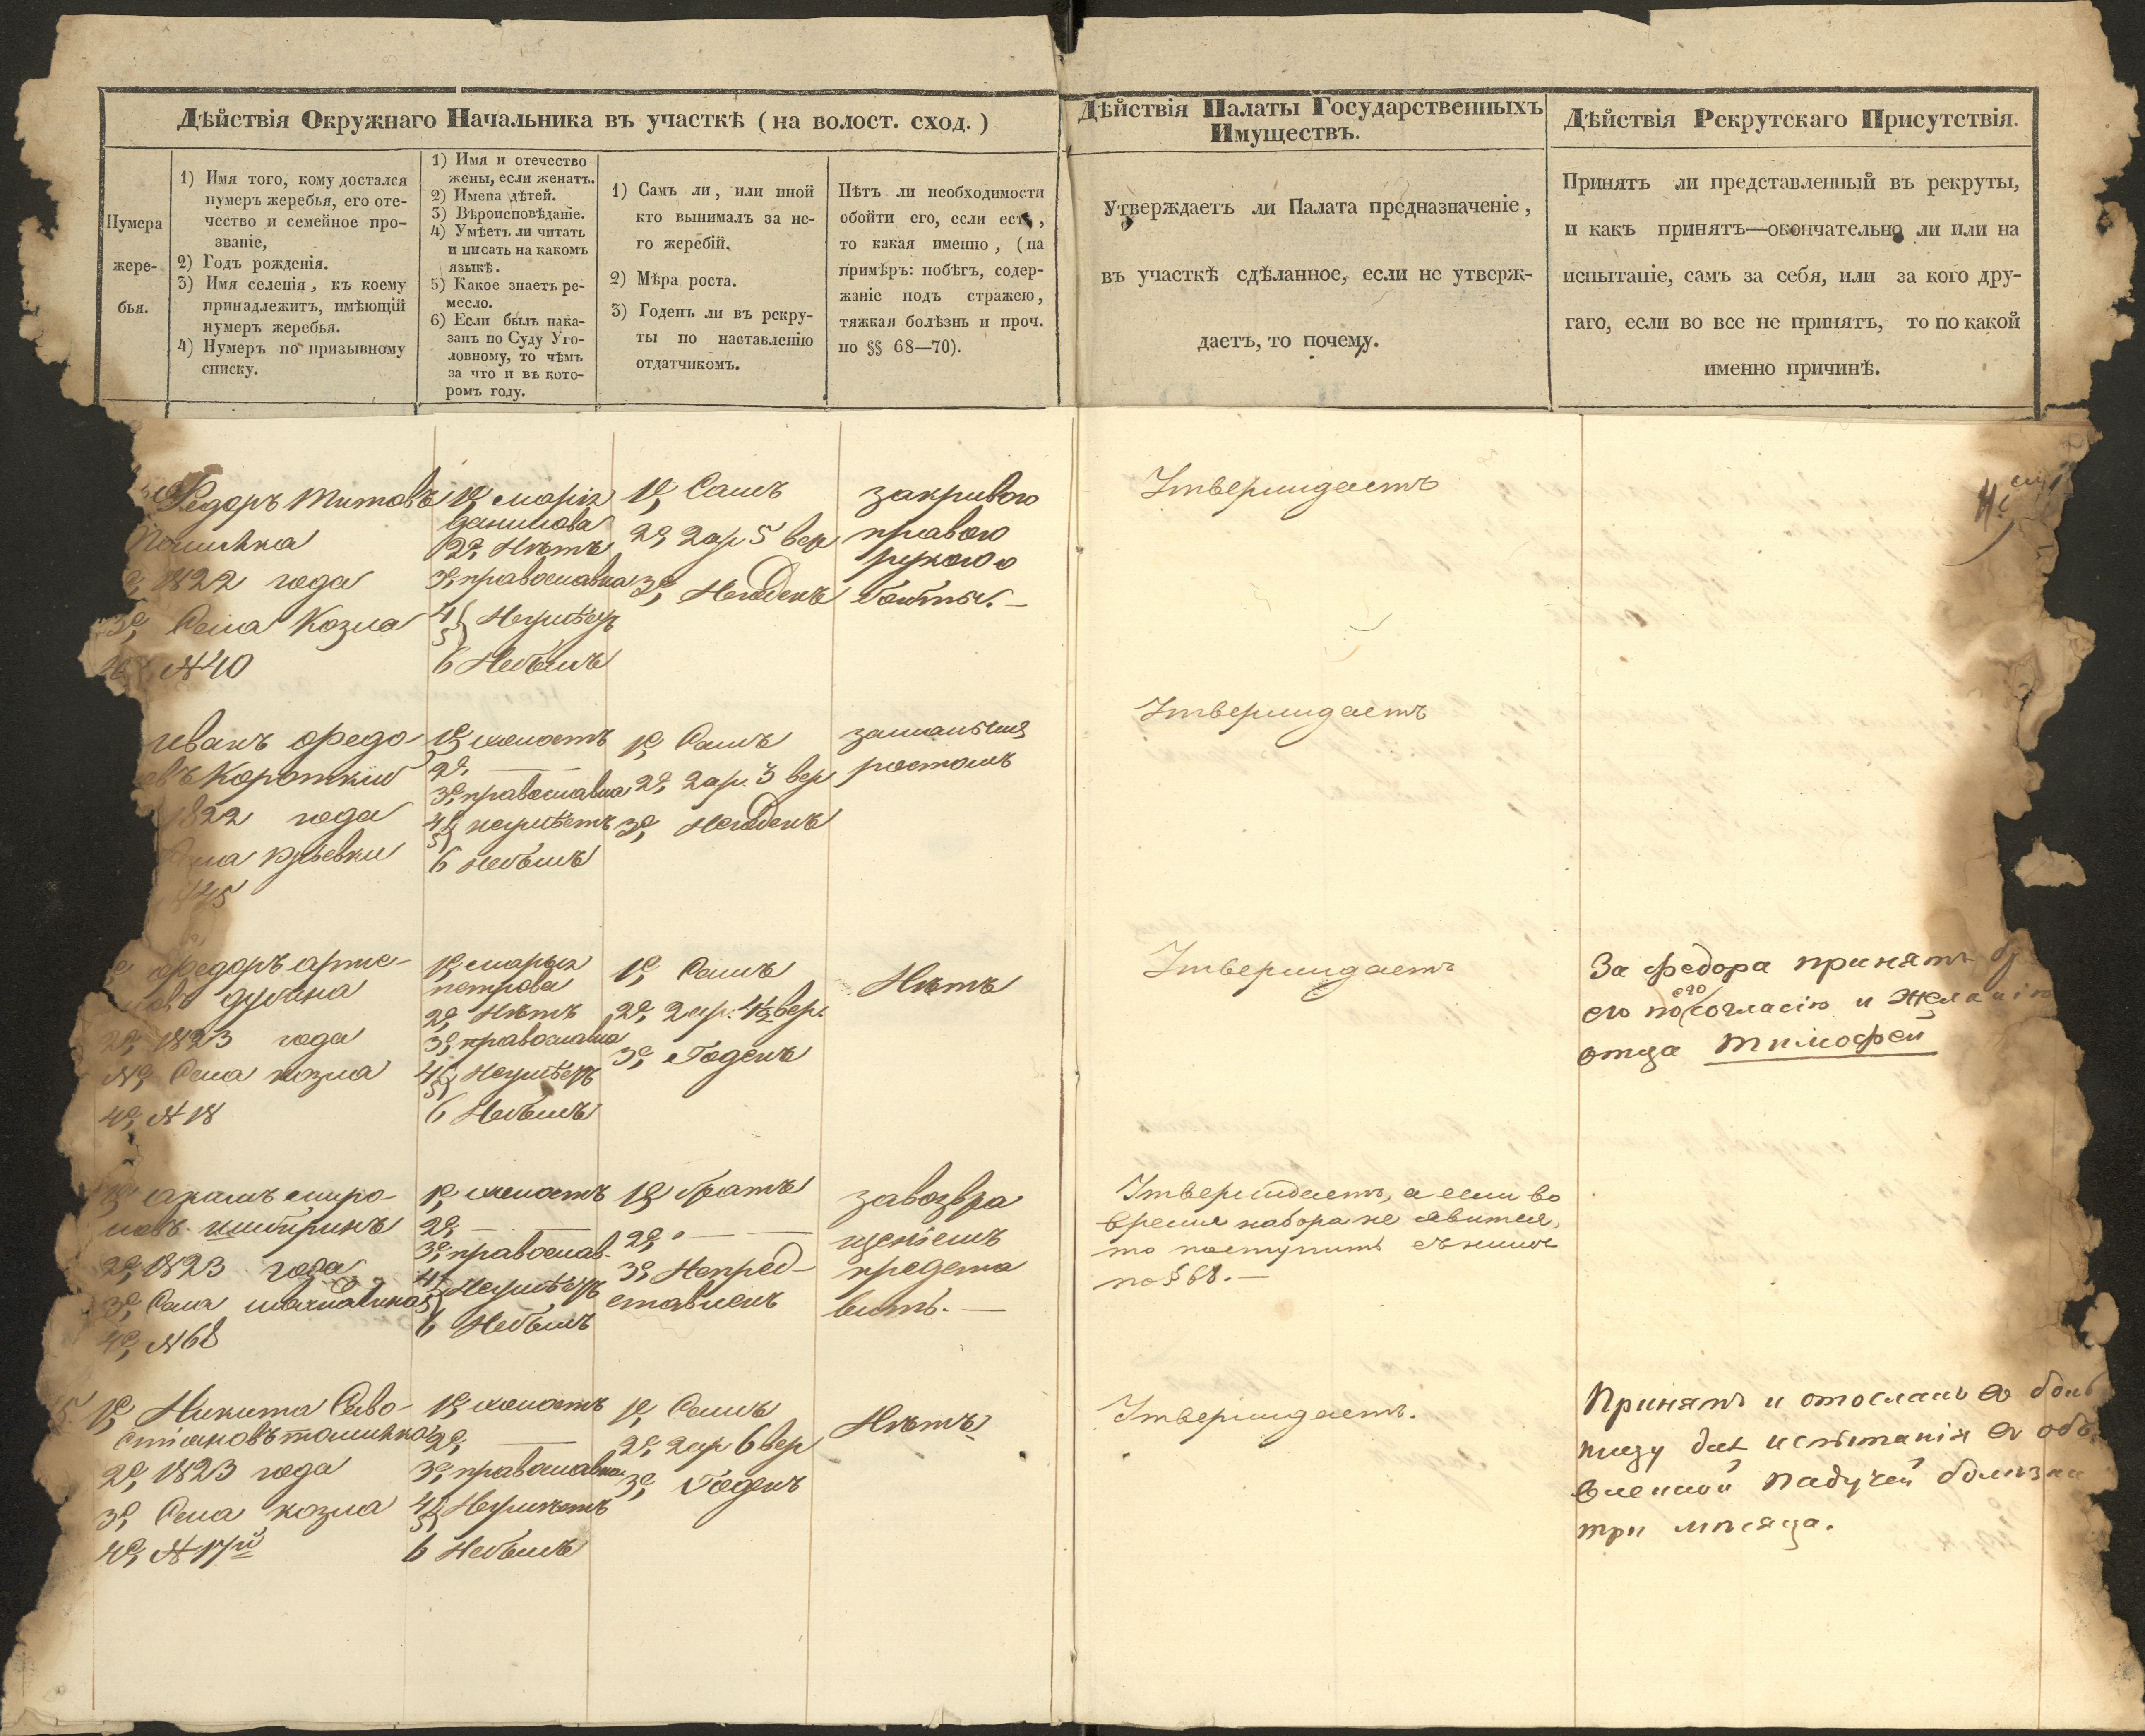 Дѣйствія Окружнаго Начальника въ участкѣ (на волост. сход.)
Нумера
жере-
бья.
1) Имя того, кому достался
нумеръ жеребья, его оте-
чество и семейное про-
званіе,
2) Годъ рожденія.
3) Имя селенія, къ коему
принадлежитъ, имѣющій
нумеръ жеребья.
4) Нумеръ по призывному
списку.
1) Имя и отечество
жены, если женатъ.
2) Имена дѣтей.
3) Вѣроисповѣданіе.
4) Умѣетъ ли читать
и писать на какомъ
языкѣ.
5) Какое знаетъ ре-
месло.
6) Если былъ нака-
занъ по Суду Уго-
ловному, то чѣмъ
за что и въ кото-
ромъ году.
1) Самъ ли, или иной
кто вынималъ за не-
го жеребій.
2) Мѣра роста.
3) Годенъ ли въ рекру-
ты по наставленію
отдатчикомъ.
Нѣтъ ли необходимости
обойти его, если есть,
то какая именно, (на
примѣръ: побѣгъ, содер-
жаніе подъ стражею,
тяжкая болѣзнь и проч.
по §§ 68—70).
Дѣйствія Палаты Государственныхъ
Имуществъ.
Утверждаетъ ли Палата предназначеніе,
въ участкѣ сдѣланное, если не утверж-
даетъ, то почему.
Дѣйствія Рекрутскаго Присутствія.
Принятъ ли представленный въ рекруты,
и какъ принятъ—окончательно ли или на
испытаніе, самъ за себя, или за кого дру-
гаго, если во все не принятъ, то по какой
именно причинѣ.
Федоръ Титовъ
1822 года
3е, Села Козла
№40
1е, Марія
Данилова
2е, Нѣтъ
3е, православна
4
5} Неумѣетъ
6 Небылъ
1е, Самъ
2е, 2 ар 5 вер
3е, Негоденъ
закривою
правою
рукою о
Утверждаетъ
иванъ федо
евъ Короткій
1822 года
№45
1е, холостъ
2е, —
3е, православна
4
5} неумѣетъ
6 небылъ
1е, Самъ
2е, 2 ар. 3 вер
3е, Негоденъ
замалымъ
ростомъ
Утверждаетъ
федоръ арте-
дубина
2е, 1823 года
Села козла
4е, №18
1е, марья
петрова
2е, Нѣтъ
3е, православна
4
5} Неумѣетъ
6 Небылъ
1е, Самъ
2е, 2 ар. 4½ вер.
3е, Годенъ
Нѣтъ
Утверждаетъ
За федора принятъ бр
его по его согласію и желанію
отца тимофей
миро-
новъ
2е, 1823 года
3е, Села
4е, №68
1е, холостъ
2е, —
3е, православ-
4
5} Неумѣетъ
6 Небылъ
1е, братъ
2е, —
3е, Непред-
ставленъ
завозвра
щеніемъ
предста
вить. —
Утверждаетъ, а если во
время набора не явится,
то поступить съ нимъ
по § 68. —
1е, Никита Саво-
стіановъ
2е, 1823 года
3е, Села козла
4е, №17й
1е, холостъ
2е, —
3е, православна
4
5} Неумѣетъ
6 Небылъ
1е, Самъ
2е, 2 ар 6 вер
3е, Годенъ
Нѣтъ
Утверждаетъ.
Принятъ и отосланъ въ боль
ницу для испытанія въ объ
вленной падучей болѣзни
три мѣсяца.